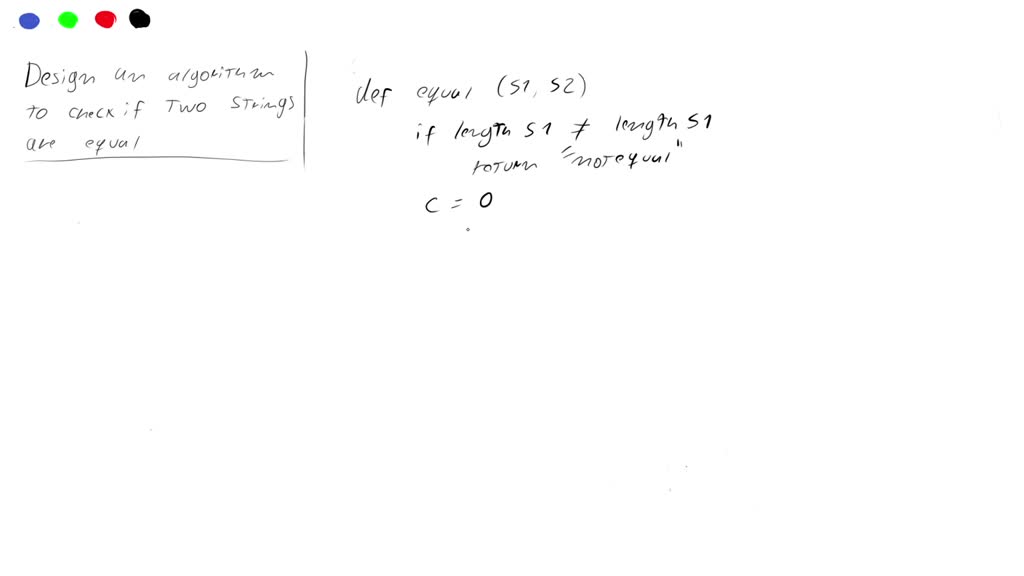 Design an algorithm
to check if Two Strings
are equal
def equal (S1, S2)
if length S1 ≠ length S1
return "not equal"
c = 0